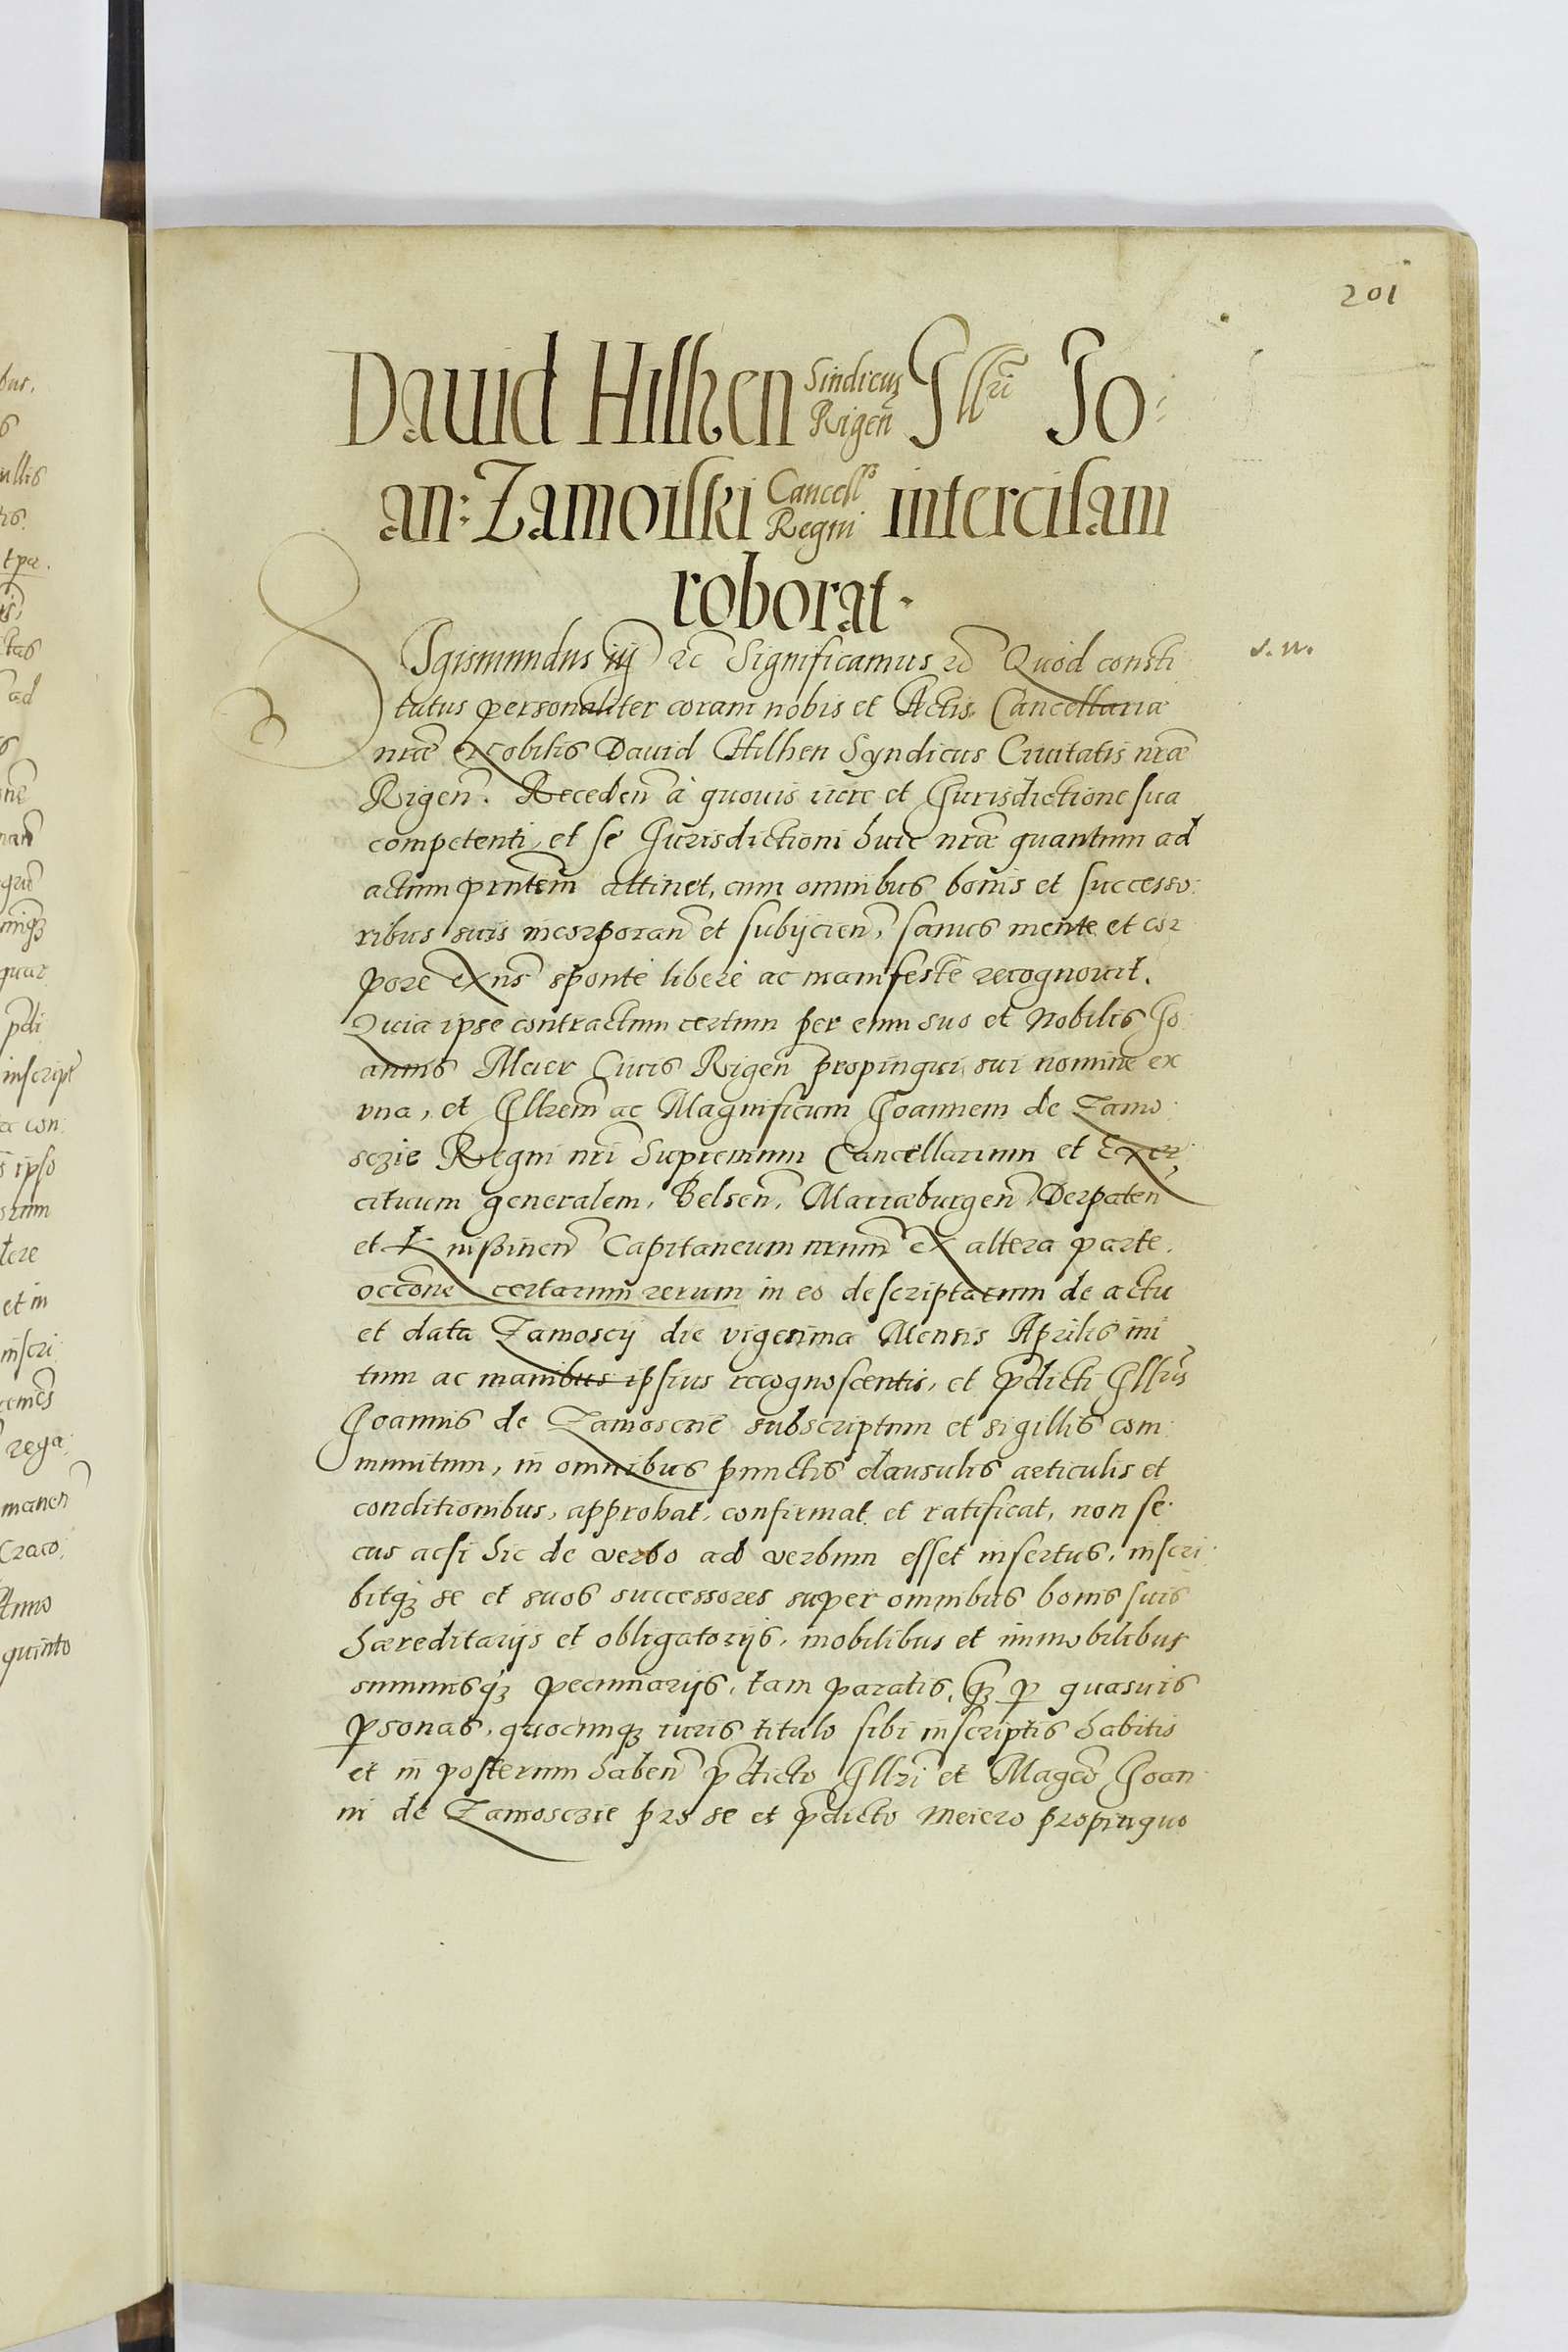 201
Dauid Hilhen Sindicus Rigen̄ Jllri Jo:
an: Zamoiski Cancell Regni intercisam
roborat.
Sigismundus iij ꝛc Significamus ꝛc Quod consti
s. n.
tutus personaliter coram nobis et Actis Cancellariæ
nræ Nobilis Dauid Hilhen Syndicus Ciuitatis nræ
Rigen̄. Receden̄ à quouis iure et Jurisdictione sua
competenti, et se Jurisdictioni huic nræ quantum ad
actum pn̄tem attinet, cum omnibus bonis et successo:
ribus suis incorporan̄ et subijcien̄, sanus mente et cor
pore exn̄s sponte libere ac manifeste recognouit.
Quia ipse contractum certum per eum suo et Nobilis Jo
annis Meier Ciuis Rigen̄ propinqui sui nomine ex
vna, et Jllrem ac Magnificum Joannem de Zamo:
sczie Regni nri Supremum Cancellarium et Exer
cituum generalem, Belsen̄, Mariæburgen̄, Derpaten̄
et Knissinen̄ Capitaneum nrum ex altera parte.
occone certarum rerum in eo descriptarum de actu
et data Zamoscij die vigesima Mensis Aprilis ini
tum ac manibus ipsius recognoscentis, et p̄dicti Jllris
Joannis de Zamoscie subscriptum et sigillis com:
munitum, in omnibus punctis clausulis articulis et
conditionibus, approbat, confirmat et ratificat, non se
cus acsi hic de verbo ad verbum esset insertus, inscri:
bitqꝫ se et suos successores super omnibus bonis suis
hæreditarijs et obligatorijs, mobilibus et immobilibus
summisqꝫ pecuniarijs, tam paratis, qꝫ ꝑ quasuis
ꝑsonas, quocunqꝫ iuris titulo sibi inscriptis habitis
et in posterum haben̄ p̄dicto Jllri et Magco Joan
ni de Zamosczie pro se et p̄dicto Meiero propinquo